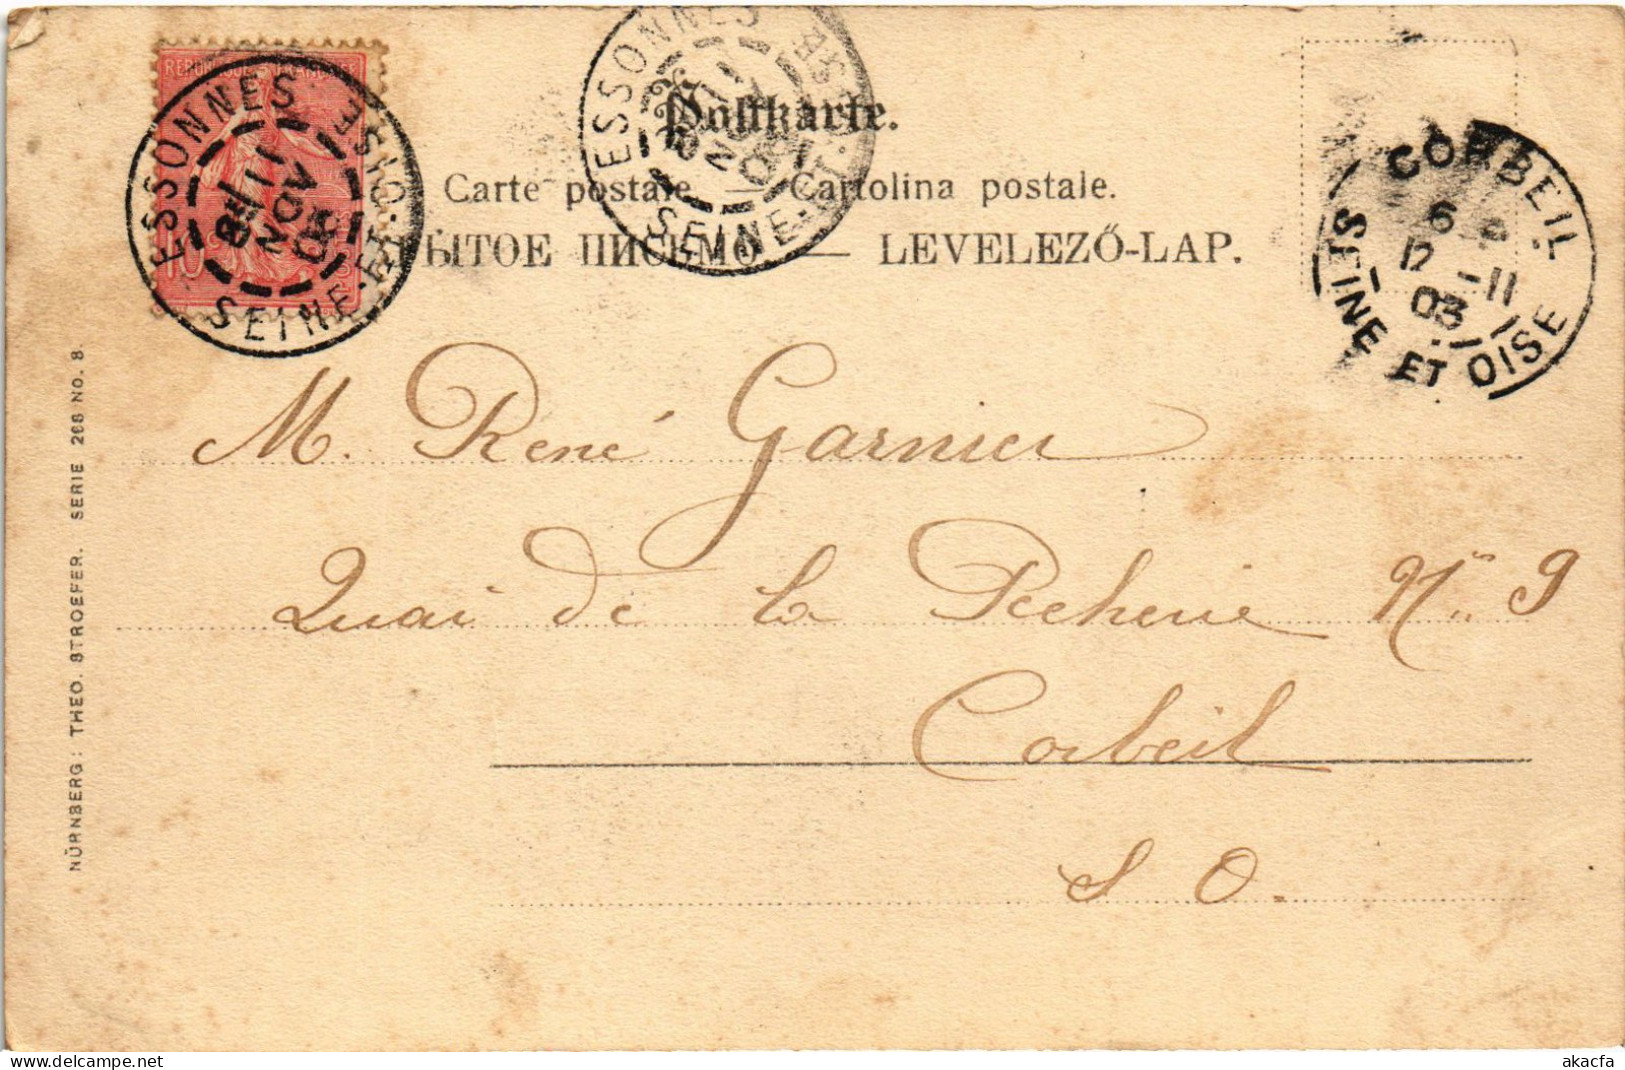 REPUBLIQUE FRANÇAISE
10
ESSONNES
8E
11
NOV
03
SEINE-ET-OISE
ESSONNES
NOV
SEINE-ET-OISE
Postkarte.
Carte postale — Cartolina postale.
РЫТОЕ ПИСЬМО — LEVELEZŐ-LAP.
CORBEIL
6
12 -11
03
SEINE ET OISE
M. René Garnier
Quai de la Pecherie No 9
Corbeil
S O.
NÜRNBERG: THEO. STROEFER. SERIE 268 NO. 8.
akacfa